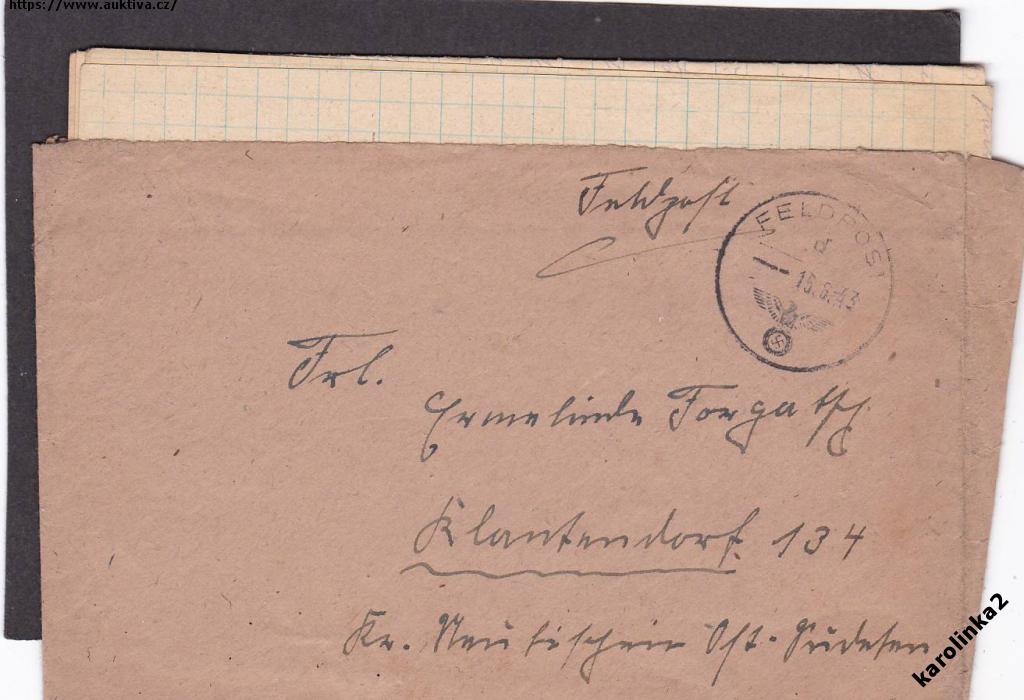 https://www.auktiva.cz/
Feldpost
FELDPOST
d
15.6.43
Frl.
Ermelinde Forgatsch
Klantendorf 134
Kr. Neutischein Ost-Sudeten
karolinka2